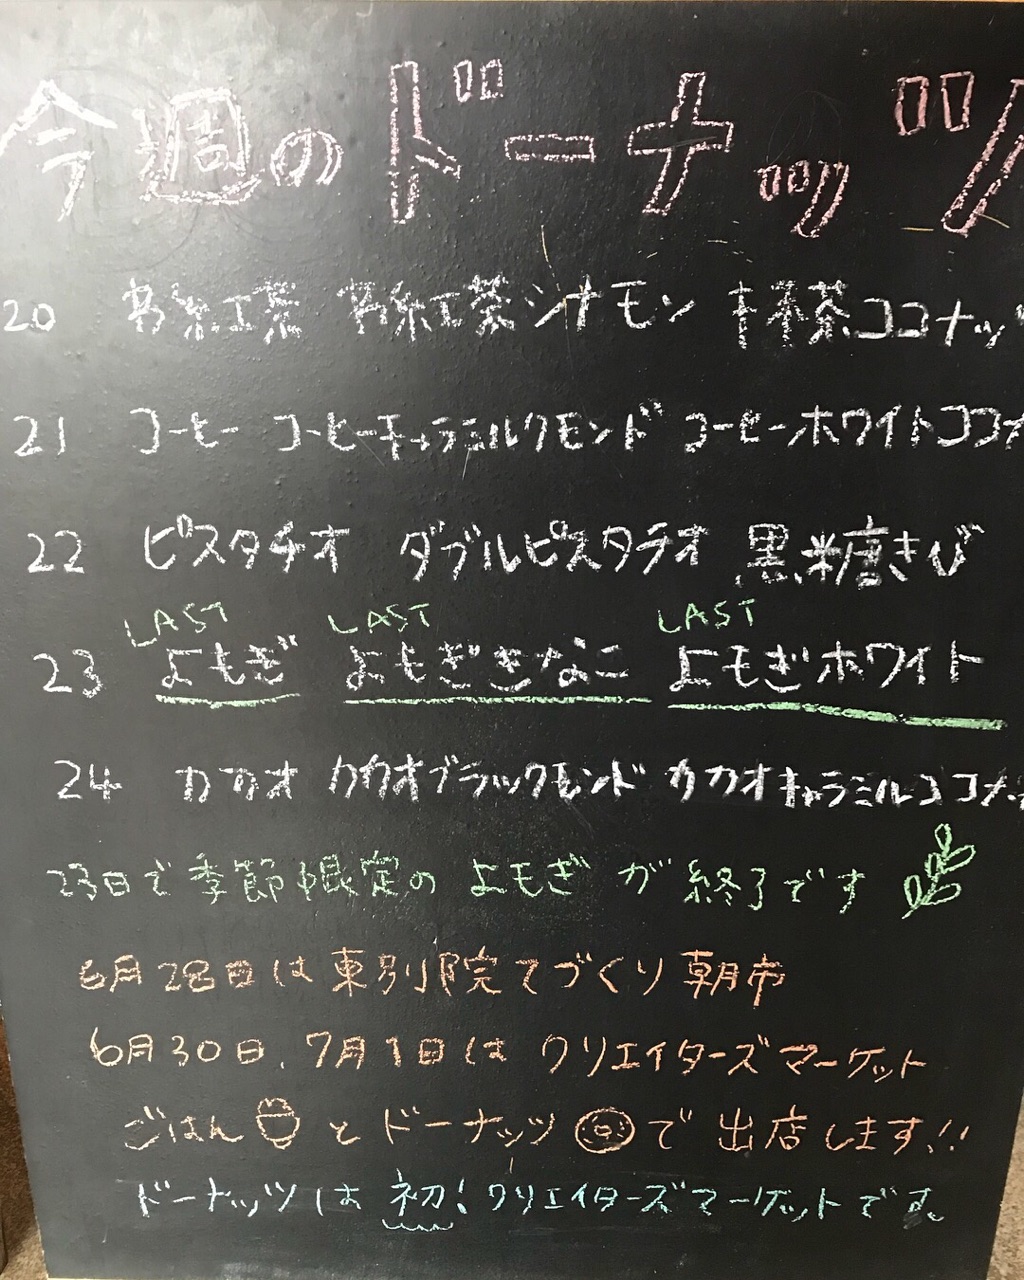 今週のドーナッツ
20 和紅茶 和紅茶シナモン 抹茶ココナッツ
21 コーヒー コーヒーキャラミルクモンド コーヒーホワイトココナ
22 ピスタチオ ダブルピスタチオ 黒糖きび
LAST LAST LAST
23 よもぎ よもぎきなこ よもぎホワイト
24 カカオ カカオブラックモンド カカオキャラミルココナッ
23日で季節限定の よもぎ が終了です
6月28日は東別院てづくり朝市
6月30日、7月1日は クリエイターズマーケット
ごはんとドーナッツで出店します!!
ドーナッツは初!クリエイターズマーケットです。